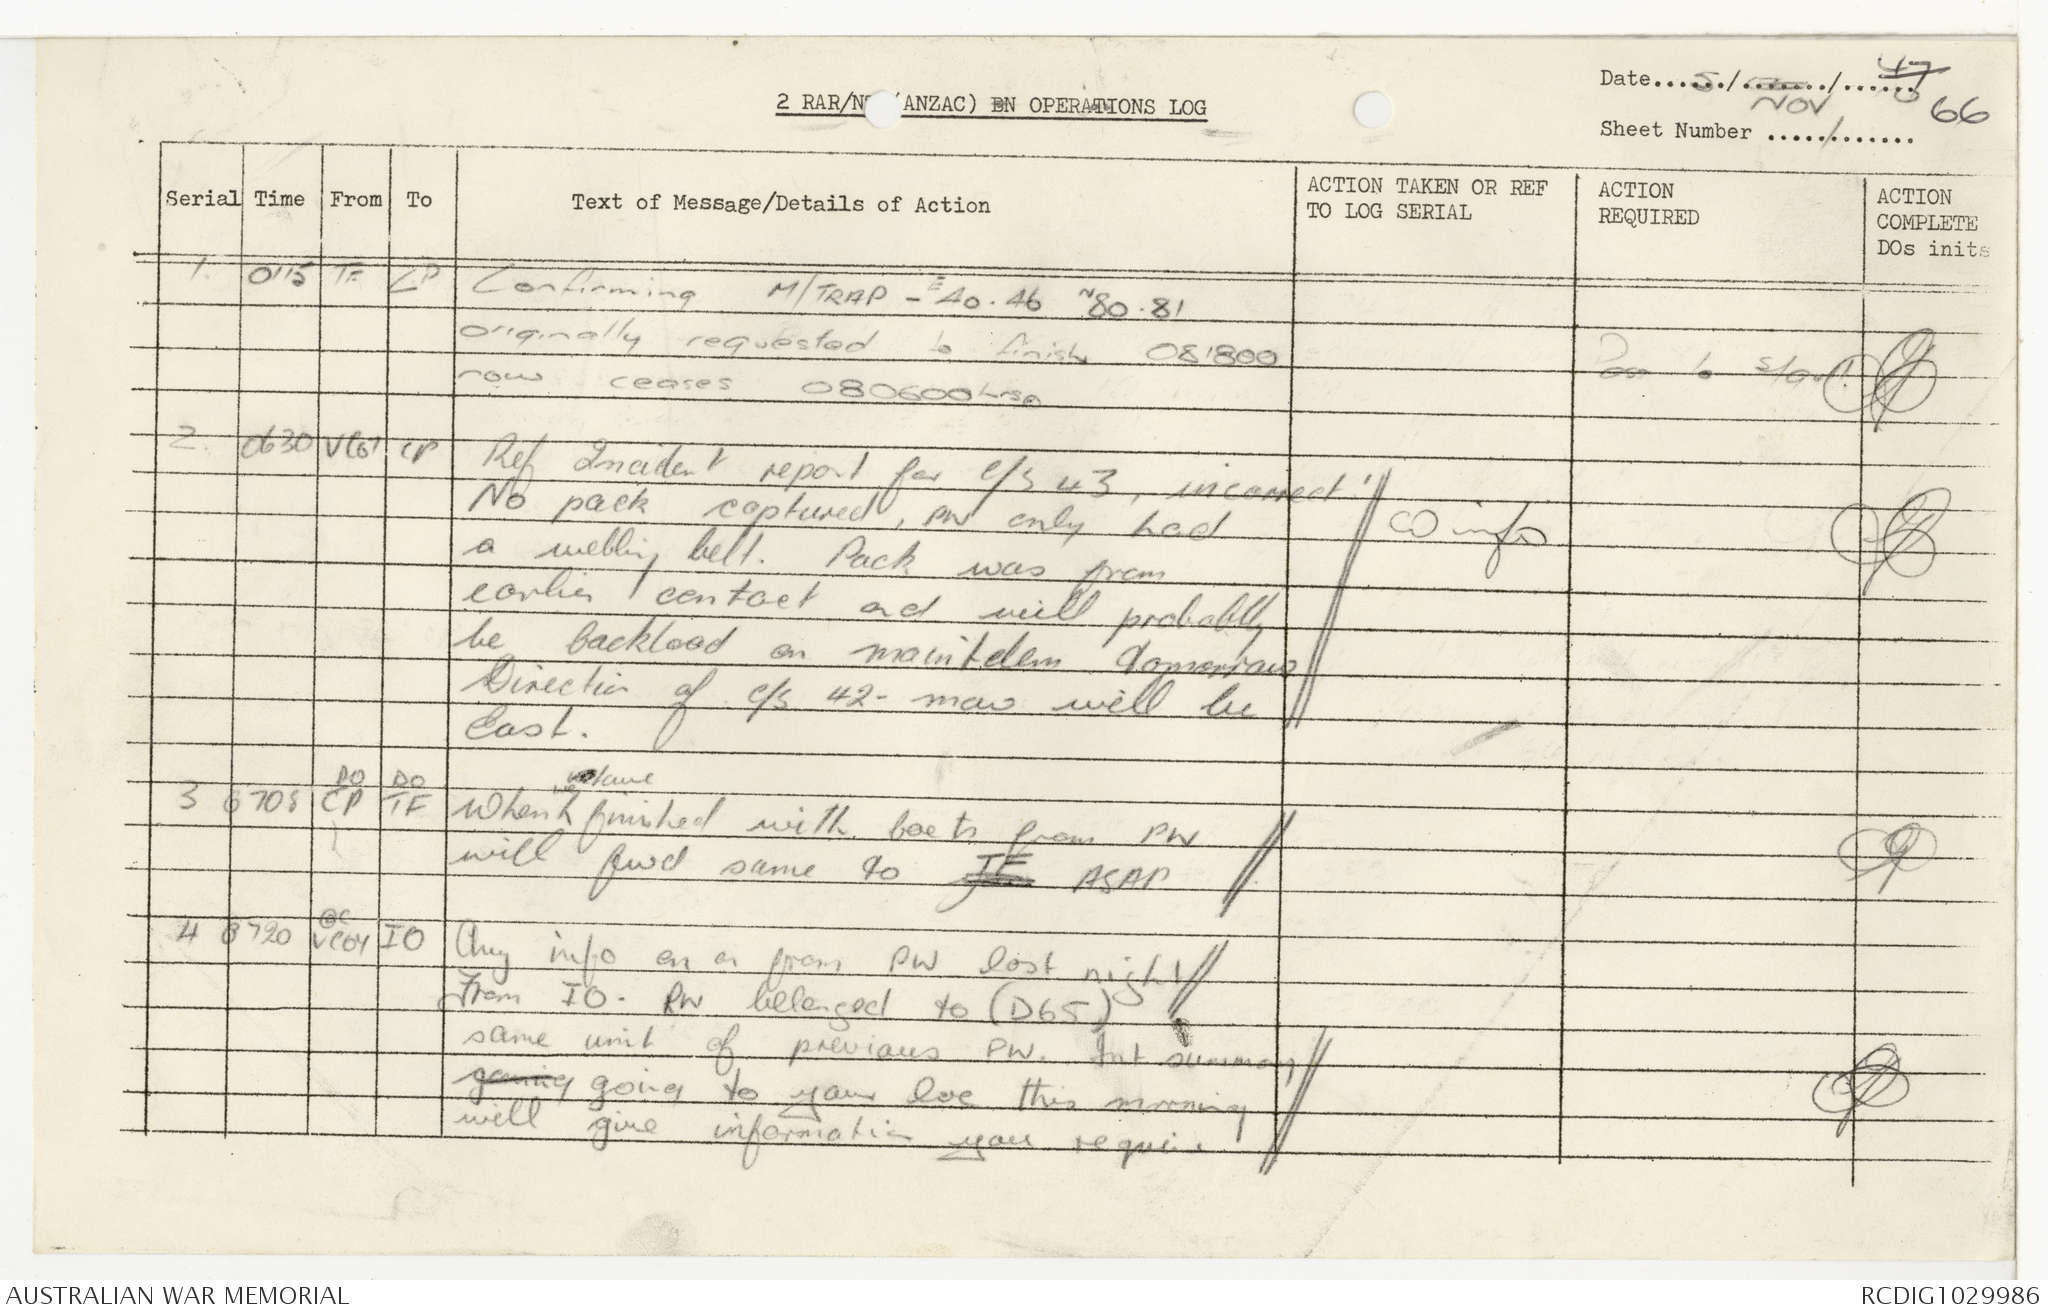 2 RAR/NZ (ANZAC) BN OPERATIONS LOG
Date.. 5 / NOV / 
66
Sheet Number 1
Serial Time From To Text of Message/Details of Action ACTION TAKEN OR REF TO LOG SERIAL ACTION REQUIRED ACTION COMPLETE DOs inits
1. 0115 TF CP Confirming M/TRAP - E 40.46 N 80.81
originally requested to finish 081800
now ceases 080600hrs.
Pass to
2. 0630 VCoy CP Ref Incident report for C/S 43, incorrect.
No pack captured, PW only had
CO info
a webbing belt. Pack was from
earlier contact and will probably
be backload on maintdem tomorrow
Direction of C/S 42- mov will be
East.
3 0705 DO CP DO TF When we finished with boots from PW
will fwd same to TF ASAP
4 0720 OC VCOY IO Any info on or from PW last night
From IO. PW belonged to (D65)
same unit of previous PW. Int summary
going going to your loc this morning
will give information you require
AUSTRALIAN WAR MEMORIAL
RCDIG1029986